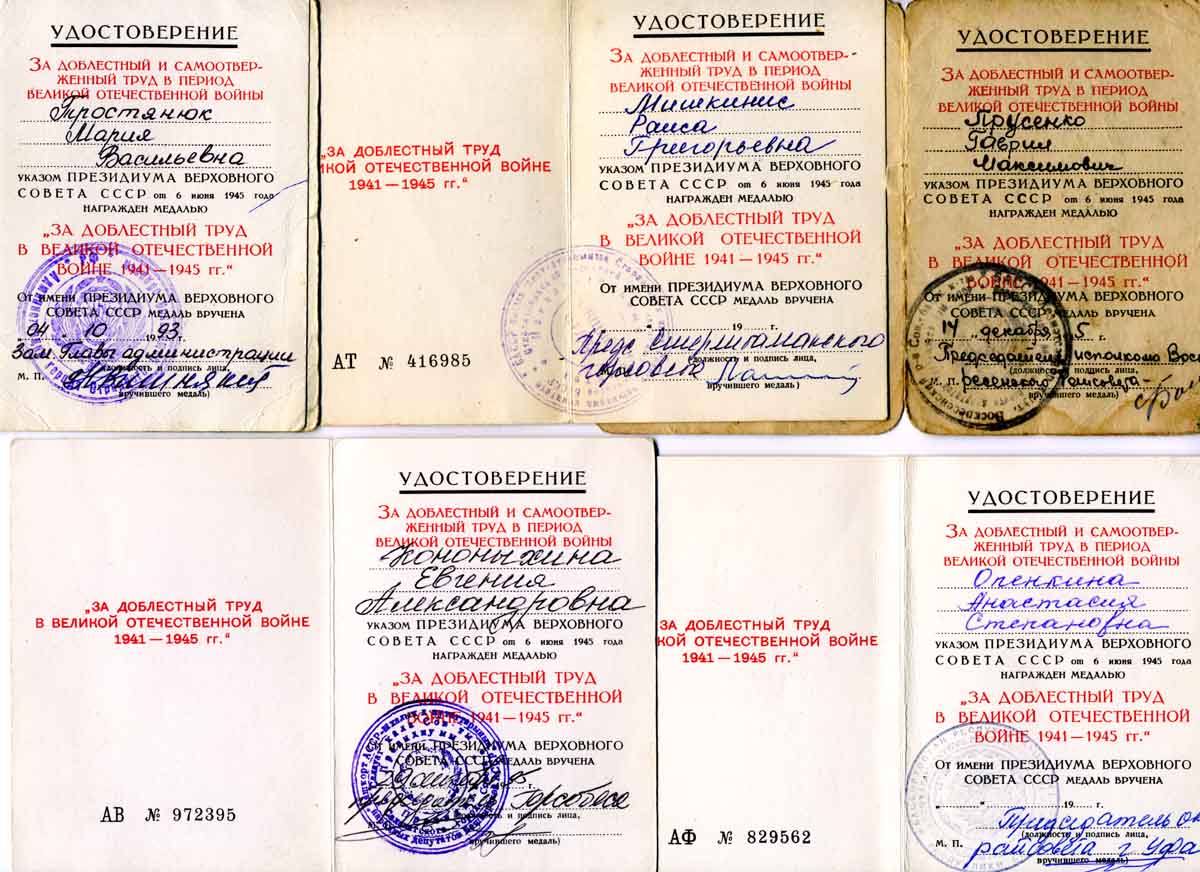 УДОСТОВЕРЕНИЕ
ЗА ДОБЛЕСТНЫЙ И САМООТВЕР-
ЖЕННЫЙ ТРУД В ПЕРИОД
ВЕЛИКОЙ ОТЕЧЕСТВЕННОЙ ВОЙНЫ
Тростянюк
Мария
Васильевна
УКАЗОМ ПРЕЗИДИУМА ВЕРХОВНОГО
СОВЕТА СССР от 6 июня 1945 года
НАГРАЖДЕН МЕДАЛЬЮ
„ЗА ДОБЛЕСТНЫЙ ТРУД
В ВЕЛИКОЙ ОТЕЧЕСТВЕННОЙ
ВОЙНЕ 1941—1945 гг.“
ОТ ИМЕНИ ПРЕЗИДИУМА ВЕРХОВНОГО
СОВЕТА СССР МЕДАЛЬ ВРУЧЕНА
04 " 10 1993 г.
Зам. Главы администрации
(должность и подпись лица,
М. П.
вручившего медаль)
„ЗА ДОБЛЕСТНЫЙ ТРУД
КОЙ ОТЕЧЕСТВЕННОЙ ВОЙНЕ
1941—1945 гг.“
АТ № 416985
УДОСТОВЕРЕНИЕ
ЗА ДОБЛЕСТНЫЙ И САМООТВЕР-
ЖЕННЫЙ ТРУД В ПЕРИОД
ВЕЛИКОЙ ОТЕЧЕСТВЕННОЙ ВОЙНЫ
Мишкинис
Раиса
Григорьевна
УКАЗОМ ПРЕЗИДИУМА ВЕРХОВНОГО
СОВЕТА СССР от 6 июня 1945 года
НАГРАЖДЕН МЕДАЛЬЮ
„ЗА ДОБЛЕСТНЫЙ ТРУД
В ВЕЛИКОЙ ОТЕЧЕСТВЕННОЙ
ВОЙНЕ 1941—1945 гг.“
ОТ ИМЕНИ ПРЕЗИДИУМА ВЕРХОВНОГО
СОВЕТА СССР МЕДАЛЬ ВРУЧЕНА
" " 19 г.
Пред. Стерлитаманского
(должность и подпись лица,
горсовета
вручившего медаль)
УДОСТОВЕРЕНИЕ
ЗА ДОБЛЕСТНЫЙ И САМООТВЕР-
ЖЕННЫЙ ТРУД В ПЕРИОД
ВЕЛИКОЙ ОТЕЧЕСТВЕННОЙ ВОЙНЫ
Прусенко
Гаврил
Максимович
УКАЗОМ ПРЕЗИДИУМА ВЕРХОВНОГО
СОВЕТА СССР от 6 июня 1945 года
НАГРАЖДЕН МЕДАЛЬЮ
„ЗА ДОБЛЕСТНЫЙ ТРУД
В ВЕЛИКОЙ ОТЕЧЕСТВЕННОЙ
ВОЙНЕ 1941—1945 гг.“
ОТ ИМЕНИ ПРЕЗИДИУМА ВЕРХОВНОГО
СОВЕТА СССР МЕДАЛЬ ВРУЧЕНА
14 декабря 5 г.
Председатель исполкома Вос
(должность и подпись лица,
М. П.
вручившего медаль)
„ЗА ДОБЛЕСТНЫЙ ТРУД
В ВЕЛИКОЙ ОТЕЧЕСТВЕННОЙ ВОЙНЕ
1941—1945 гг.“
АВ № 972395
УДОСТОВЕРЕНИЕ
ЗА ДОБЛЕСТНЫЙ И САМООТВЕР-
ЖЕННЫЙ ТРУД В ПЕРИОД
ВЕЛИКОЙ ОТЕЧЕСТВЕННОЙ ВОЙНЫ
Кононыхина
Евгения
Александровна
УКАЗОМ ПРЕЗИДИУМА ВЕРХОВНОГО
СОВЕТА СССР от 6 июня 1945 года
НАГРАЖДЕН МЕДАЛЬЮ
„ЗА ДОБЛЕСТНЫЙ ТРУД
В ВЕЛИКОЙ ОТЕЧЕСТВЕННОЙ
ВОЙНЕ 1941—1945 гг.“
ОТ ИМЕНИ ПРЕЗИДИУМА ВЕРХОВНОГО
СОВЕТА СССР МЕДАЛЬ ВРУЧЕНА
и подпись лица,
вручившего медаль)
ЗА ДОБЛЕСТНЫЙ ТРУД
КОЙ ОТЕЧЕСТВЕННОЙ ВОЙНЕ
1941—1945 гг.“
АФ № 829562
УДОСТОВЕРЕНИЕ
ЗА ДОБЛЕСТНЫЙ И САМООТВЕР-
ЖЕННЫЙ ТРУД В ПЕРИОД
ВЕЛИКОЙ ОТЕЧЕСТВЕННОЙ ВОЙНЫ
Опенкина
Анастасия
Степановна
УКАЗОМ ПРЕЗИДИУМА ВЕРХОВНОГО
СОВЕТА СССР от 6 июня 1945 года
НАГРАЖДЕН МЕДАЛЬЮ
„ЗА ДОБЛЕСТНЫЙ ТРУД
В ВЕЛИКОЙ ОТЕЧЕСТВЕННОЙ
ВОЙНЕ 1941—1945 гг.“
ОТ ИМЕНИ ПРЕЗИДИУМА ВЕРХОВНОГО
СОВЕТА СССР МЕДАЛЬ ВРУЧЕНА
„ “ 19 г.
Председатель
(должность и подпись лица,
М. П. райсовета г. Уфа
вручившего медаль)